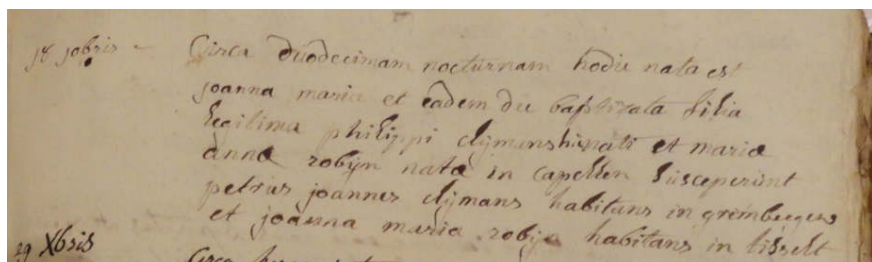 18 10bris - Circa duodecimam nocturnam hodie nata est
joanna maria et eadem die baptizata filia
legitima philippi clymans hic nati et mariæ
annæ robyn natæ in capellen susceperunt
petrus joannes clymans habitans in grimbergen
et joanna maria robyn habitans in lisselt
29 Xbris
Circa